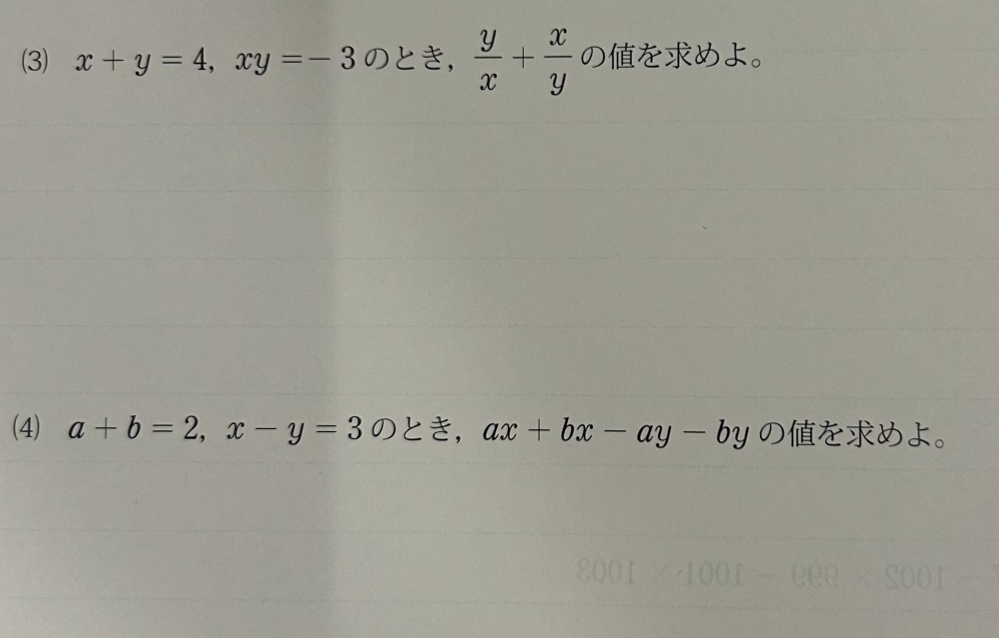 (3) x + y = 4, xy = − 3 のとき, y/x + x/y の値を求めよ。
(4) a + b = 2, x − y = 3 のとき, ax + bx − ay − by の値を求めよ。
− 1002 × 999 − 1001 × 1003